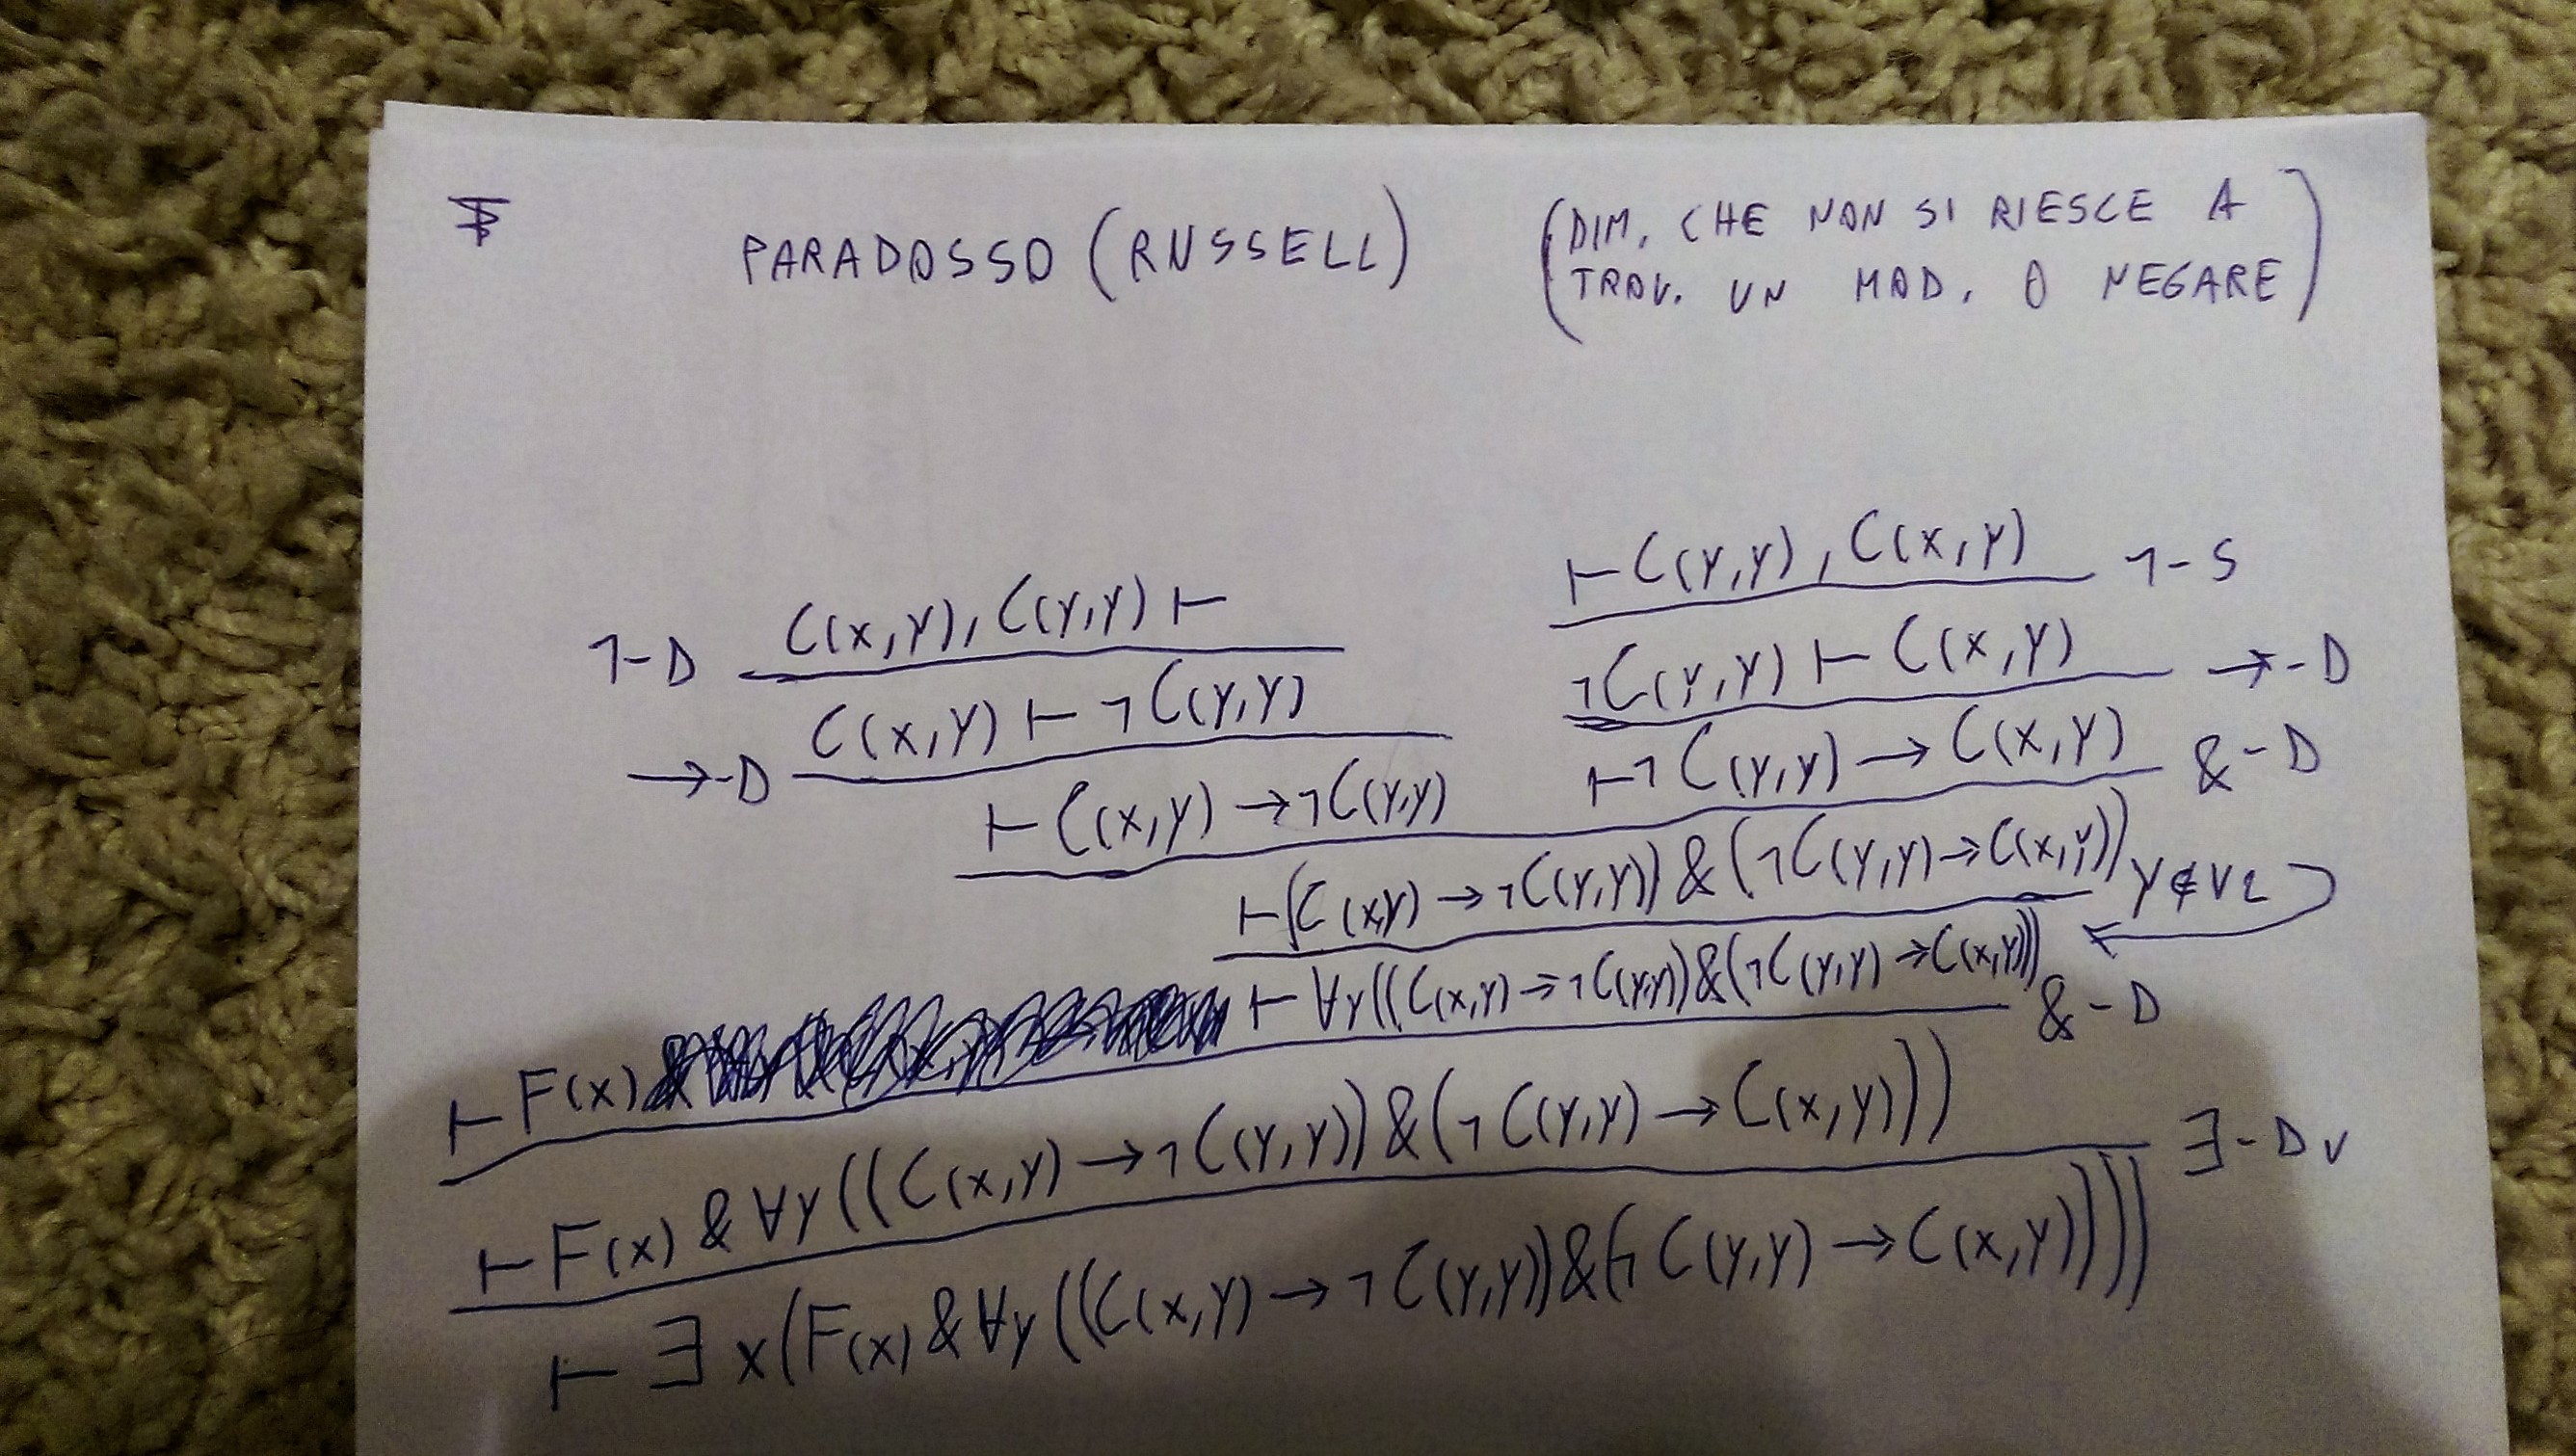 PARADOSSO (RUSSELL)
(DIM. CHE NON SI RIESCE A
TROV. UN MOD. O NEGARE)
⊢ C(y,y), C(x,y) ¬-S
¬-D C(x,y), C(y,y) ⊢
¬C(y,y) ⊢ C(x,y) →-D
→-D C(x,y) ⊢ ¬C(y,y)
⊢ ¬C(y,y) → C(x,y) &-D
⊢ C(x,y) → ¬C(y,y)
⊢ (C(x,y) → ¬C(y,y)) & (¬C(y,y) → C(x,y)) y ∉ VL
⊢ ∀y((C(x,y) → ¬C(y,y)) & (¬C(y,y) → C(x,y))) &-D
⊢ F(x)
⊢ F(x) & ∀y((C(x,y) → ¬C(y,y)) & (¬C(y,y) → C(x,y))) ∃-Dv
⊢ ∃x(F(x) & ∀y((C(x,y) → ¬C(y,y)) & (¬C(y,y) → C(x,y))))